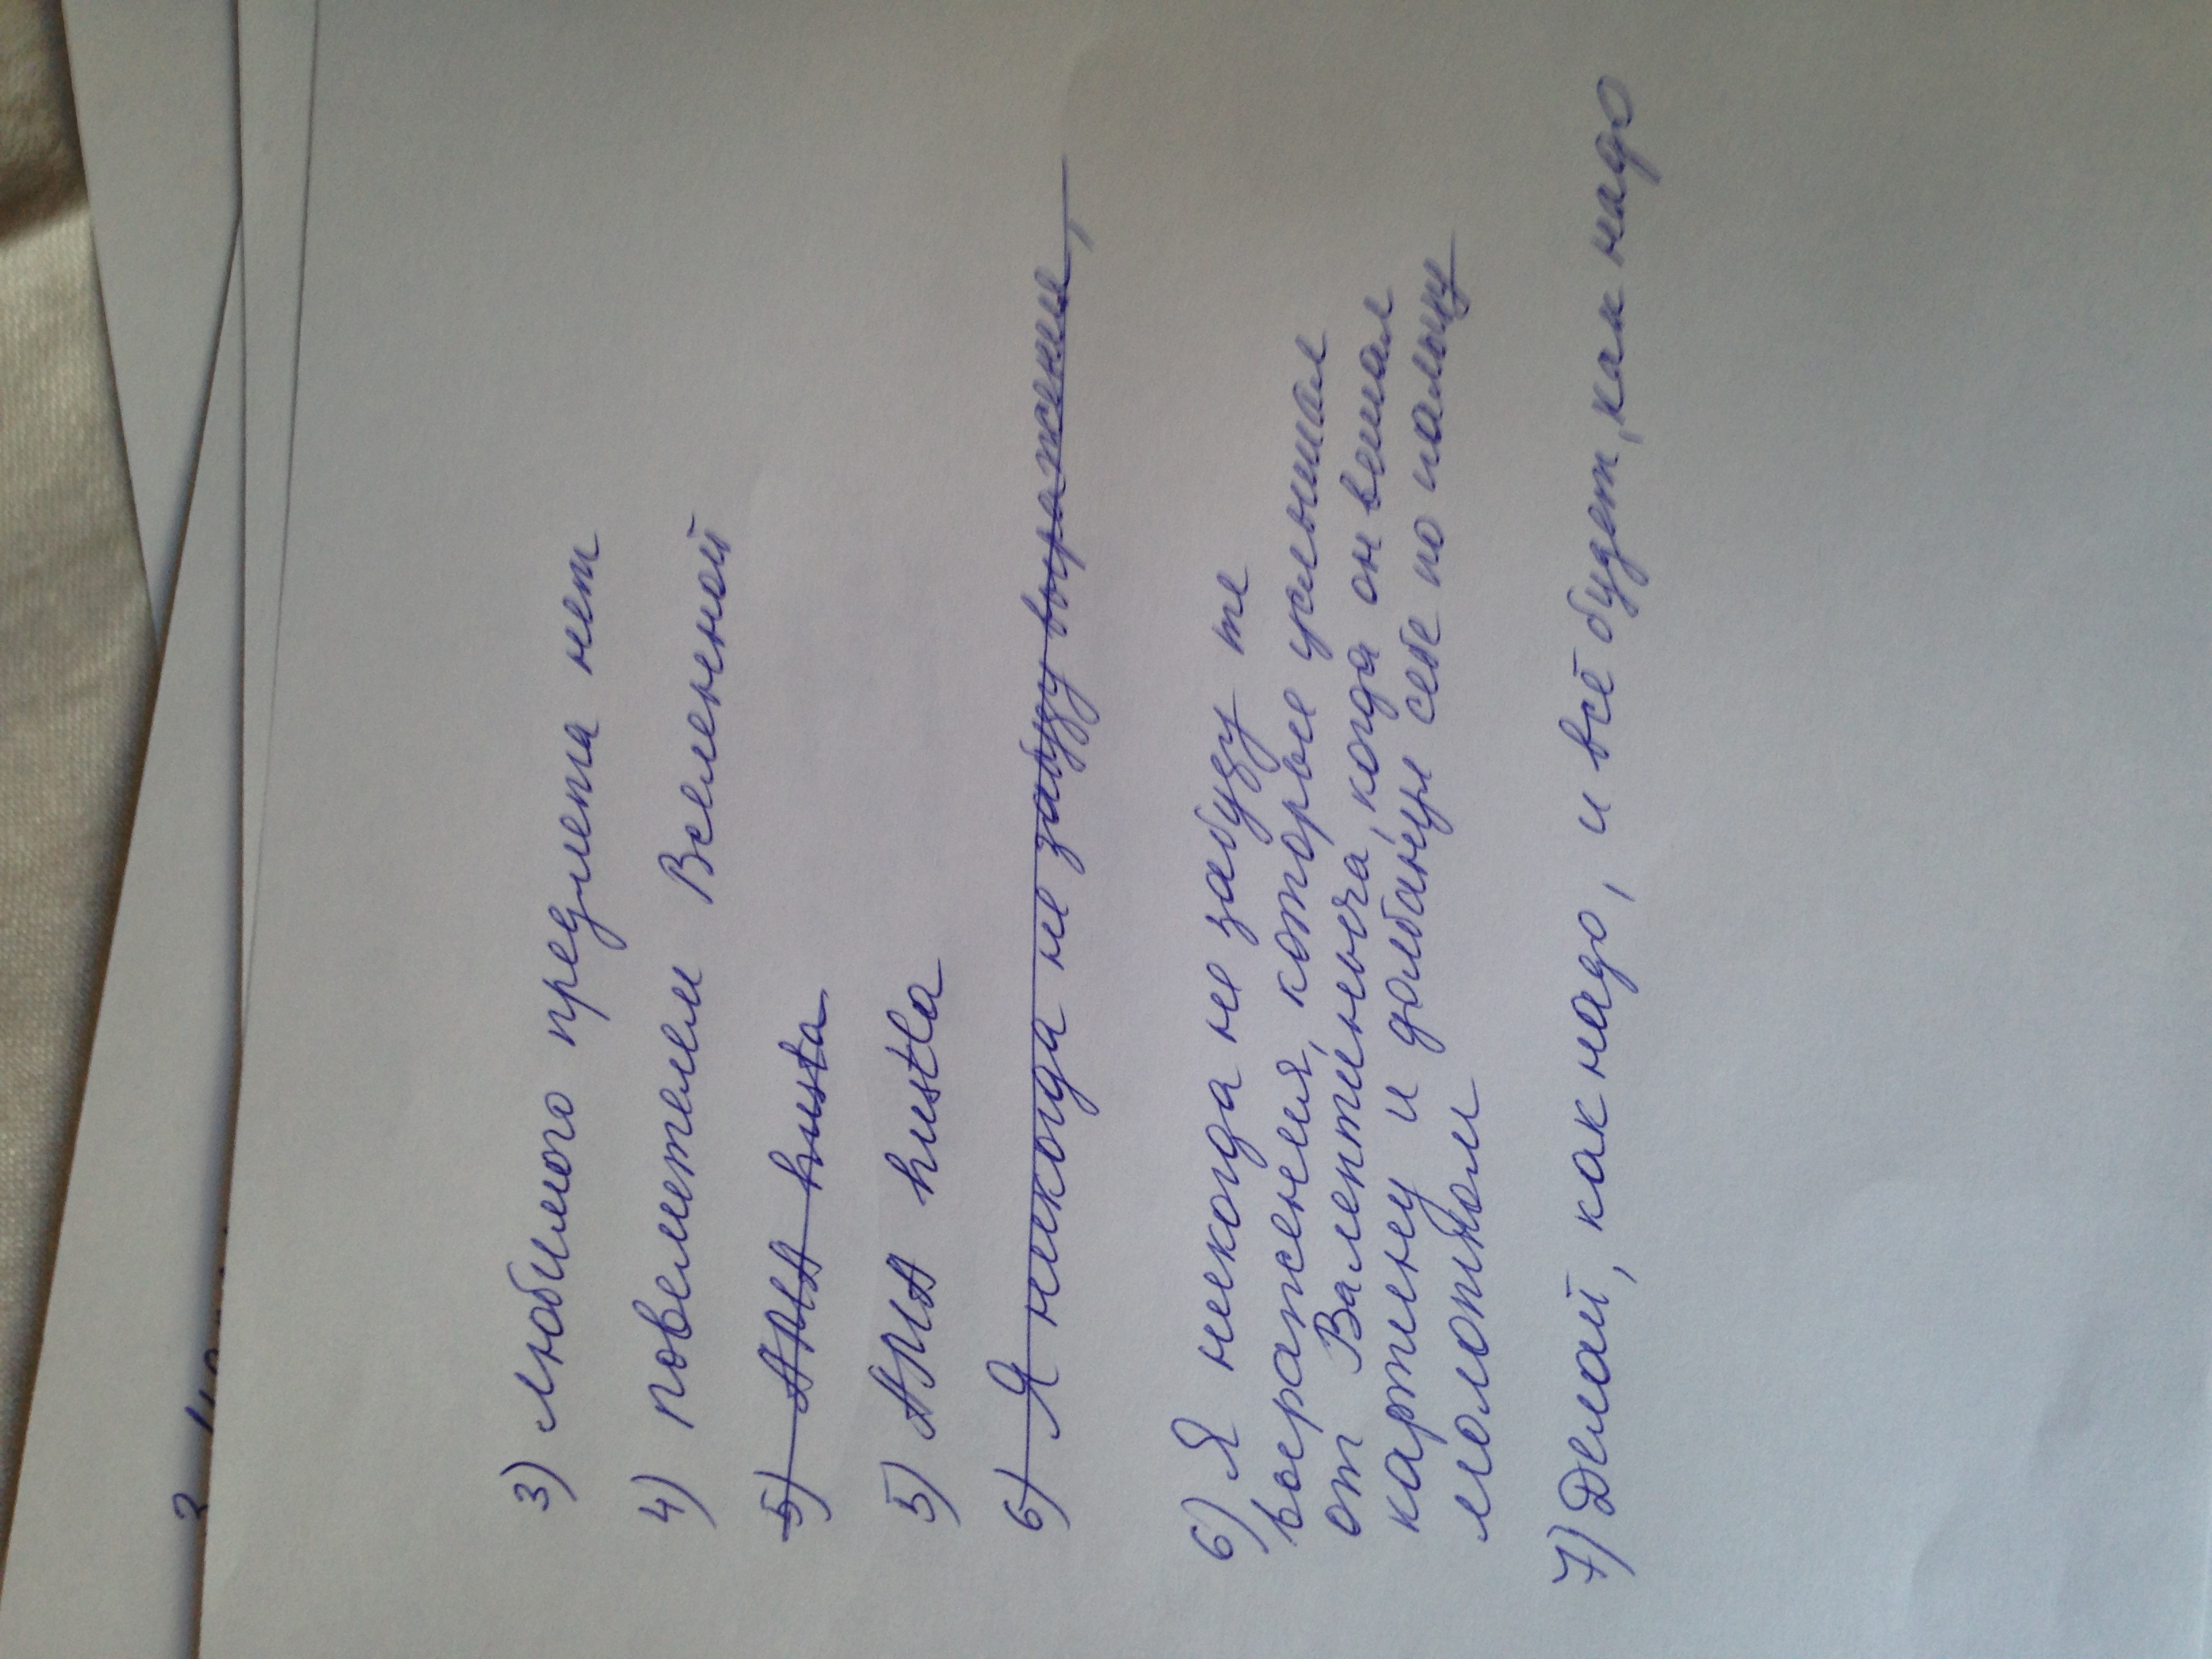 3) любимого предмета нет
4) повелителем Вселенной
5) АМА husta
5) АМА hustla
6) Я никогда не забуду выражения,
6) Я никогда не забуду те
выражения, которые услышал
от Валентиныча, когда он вешал
картину и долбанул себе по пальцу
молотком
7) Делай, как надо, и всё будет, как надо